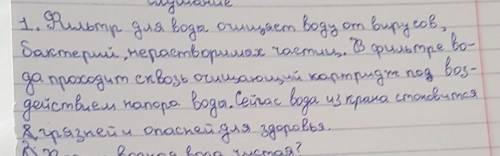 слушание
1. Фильтр для вода очищает воду от вирусов,
бактерий, нерастворимах частиц. В фильтре во-
да проходит сквозь очищающий картридж под воз-
действием напора вода. Сейчас вода из крана становится
грязней и опасней для здоровья.
вода чистая?